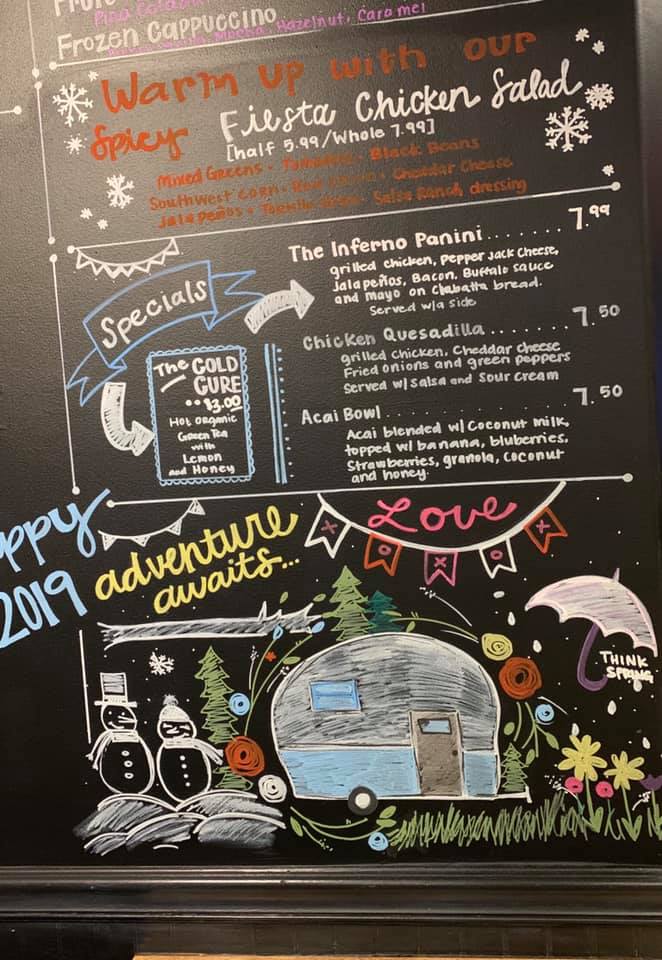 Piña Colada
Frozen Cappuccino
Mocha, Hazelnut, Caramel
Warm up with our
Spicy Fiesta Chicken Salad
[half 5.99/Whole 7.99]
Mixed Greens • Tomatoes • Black Beans
Southwest Corn • Red • Cheddar Cheese
Jalapeños • Tortilla • Salsa Ranch dressing
The Inferno Panini....... 7.99
grilled chicken, Pepper Jack Cheese,
Jalapeños, Bacon, Buffalo sauce
and mayo on ciabatta bread.
Served w/a side
Specials
Chicken Quesadilla....... 7.50
grilled chicken, Cheddar cheese
Fried onions and green peppers
Served w/ Salsa and Sour cream
The COLD
CURE
$3.00
Hot Organic
Green Tea
with
Lemon
and Honey
Acai Bowl....... 7.50
Acai blended w/ Coconut milk,
topped w/ banana, bluberries,
Strawberries, granola, coconut
and honey.
ppy
2019
adventure
awaits...
Love
X O X O X
THINK
SPRING